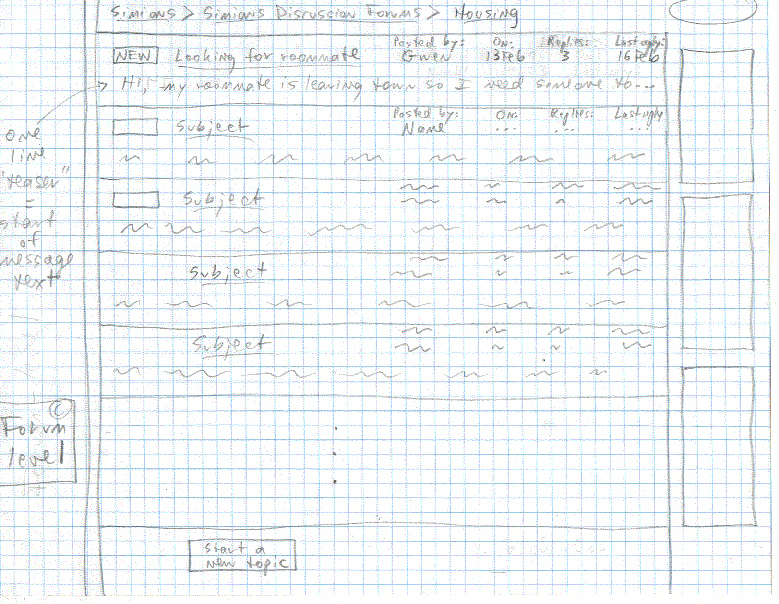 Simians > Simians Discussion Forums > Housing
NEW Looking for roommate Posted by: Gwen On: 13 Feb Replies: 3 Last reply: 16 Feb
Hi, my roommate is leaving town so I need someone to...
Subject Posted by: Name On: ... Replies: ... Last reply ...
Subject
Subject
Subject
one
line
"teaser"
=
start
of
message
text
C
Forum
level
Start a
new topic